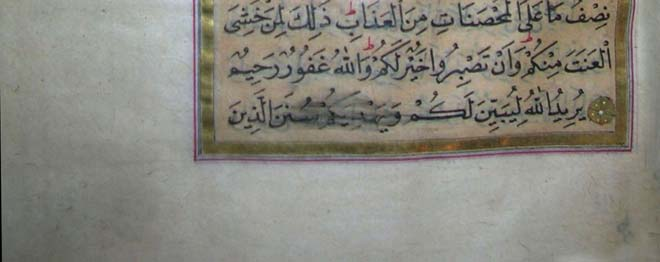 نِصْفُ مَا عَلَى الْمُحْصَنَاتِ مِنَ الْعَذَابِ ذَٰلِكَ لِمَنْ خَشِيَ
الْعَنَتَ مِنْكُمْ وَاَنْ تَصْبِرُوا خَيْرٌ لَكُمْ وَاللّٰهُ غَفُورٌ رَحِيمٌ
يُرِيدُ اللّٰهُ لِيُبَيِّنَ لَكُمْ وَيَهْدِيَكُمْ سُنَنَ الَّذِينَ